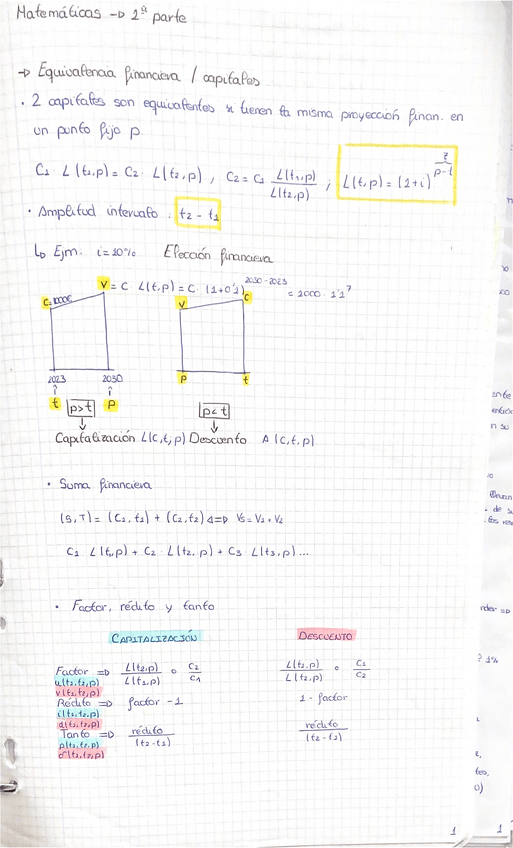 Matemáticas → 2ª parte
→ Equivalencia financiera / capitales
· 2 capitales son equivalentes si tienen la misma proyección finan. en
un punto fijo p
C₁ · L(t₁,p) = C₂ · L(t₂,p) , C₂ = C₁ L(t₁,p)/L(t₂,p) ; L(t,p) = (1+i)^(p-t)
· Amplitud intervalo : t₂ - t₁
↳ Ejm. i=10% Elección financiera
V = C · L(t,p) = C · (1+0'1)^(2030-2023) = 1000 · 1'1⁷
C=1000€ V C
2023 2030 p t
t p>t p p<t
Capitalización L(C,t,p) Descuento A(C,t,p)
· Suma financiera
(S,T) = (C₁,t₁) + (C₂,t₂) ⇔ Vs = V₁ + V₂
C₁ · L(t₁,p) + C₂ · L(t₂,p) + C₃ · L(t₃,p) ...
· Factor, rédito y tanto
CAPITALIZACIÓN DESCUENTO
Factor ⇒ L(t₁,p)/L(t₂,p) o C₂/C₁ L(t₂,p)/L(t₁,p) o C₁/C₂
u(t₁,t₂,p)
v(t₁,t₂,p)
Rédito ⇒ factor - 1 1 - factor
i(t₁,t₂,p)
d(t₁,t₂,p)
Tanto ⇒ rédito/(t₂-t₁) rédito/(t₂-t₁)
ρ(t₁,t₂,p)
σ(t₁,t₂,p)
1 1